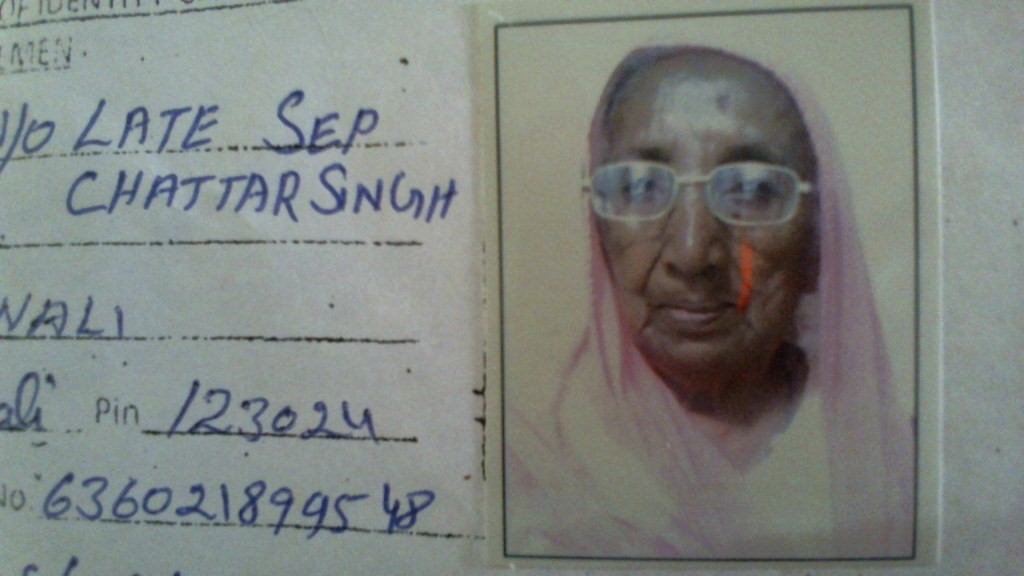 OF IDENTITY
MEN.
W/O LATE SEP
CHATTAR SINGH
WALI
ali Pin 123024
No. 6360218999548